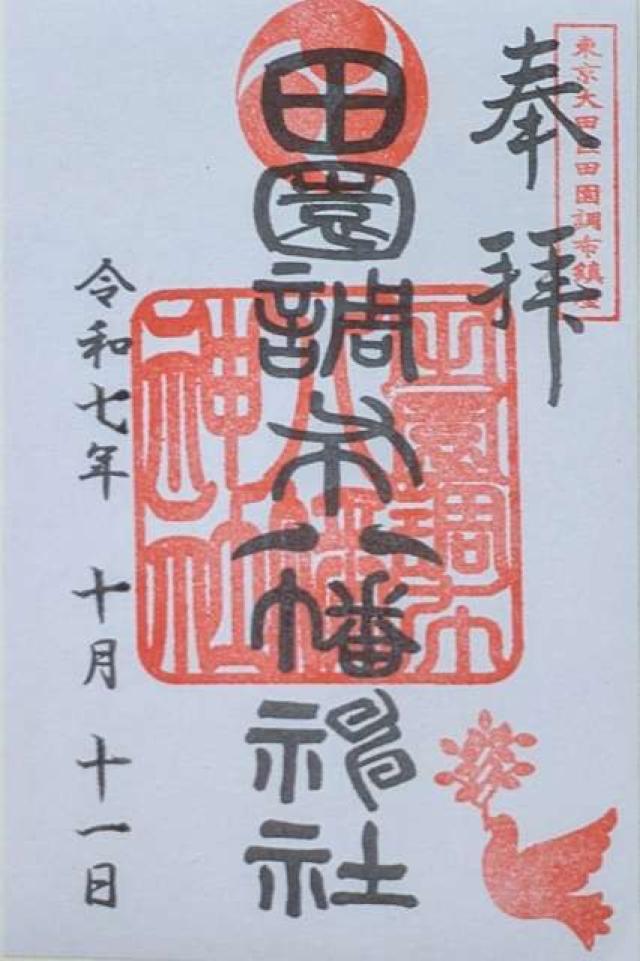 東京大田区田園調布鎮座
奉拝
田園調布八幡神社
田園調布
八幡
神社
令和七年 十月 十一日